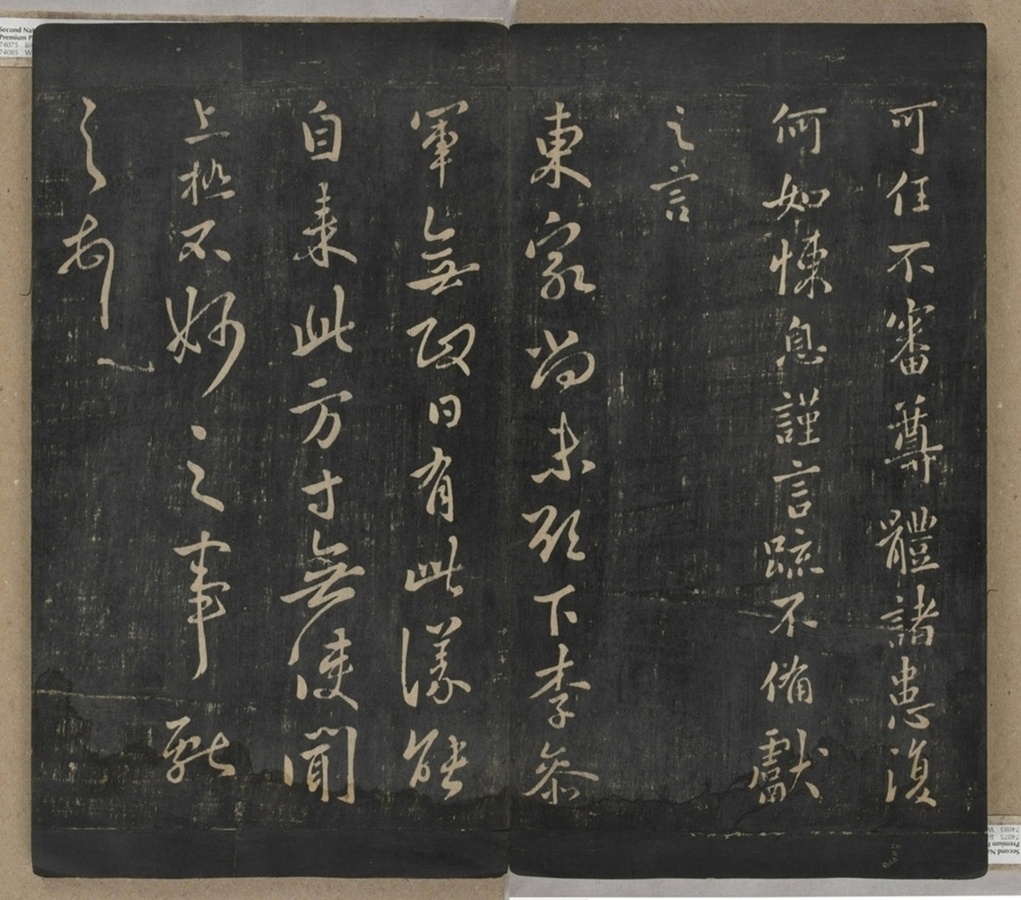 可任不審尊體諸患復
何如悚息謹言疏不備獻
之言
東家尚未殄下李參
軍無政日有此議能
自來此方寸無使聞
上極不妙之事獻
之報